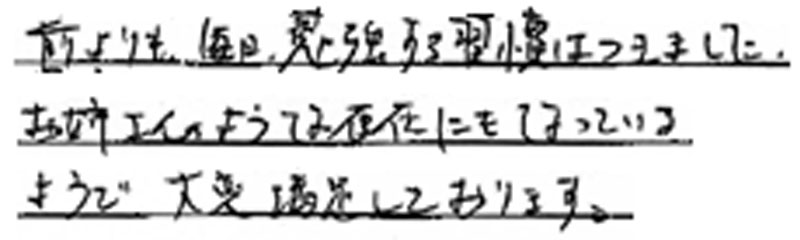 前よりも、毎日、勉強する習慣はつきました。
お姉さんのような存在にもなっている
ようで 大変満足しております。